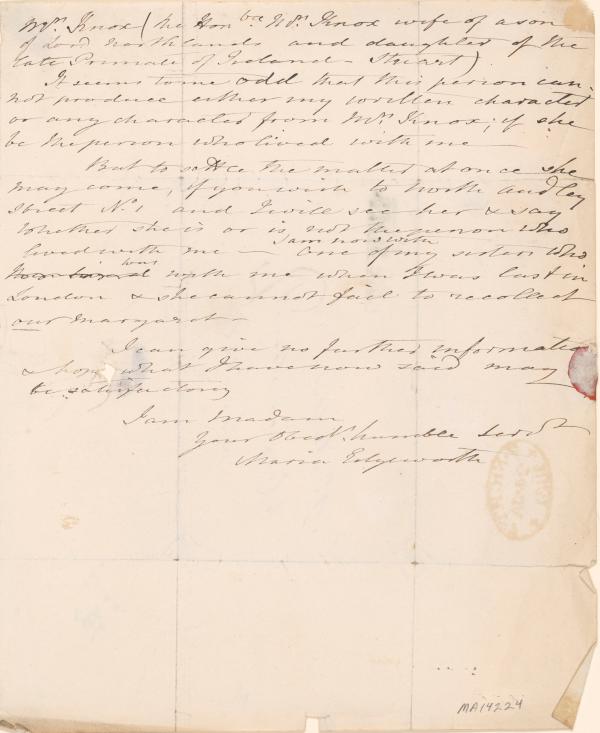 Mrs. Knox (the Honble Mrs. Knox wife of a son
of Lord Northlands and daughter of the
late Primate of Ireland - Stuart)
It seems to me odd that this person can-
not produce either my written character
or any character from Mrs. Knox; if she
be the person who lived with me —
But to settle the matter at once she
may come, if you wish to North Audley
Street No. 1 and I will see her & say
whether she is or is not the person who
lived with me — I am now with one of my sisters who
was with me when I was last in
London & she cannot fail to recollect
our Margaret —
I can give no further information
& hope what I have now said may
be satisfactory
I am Madam
Your Obedt. humble Servt
Maria Edgeworth
MA14224